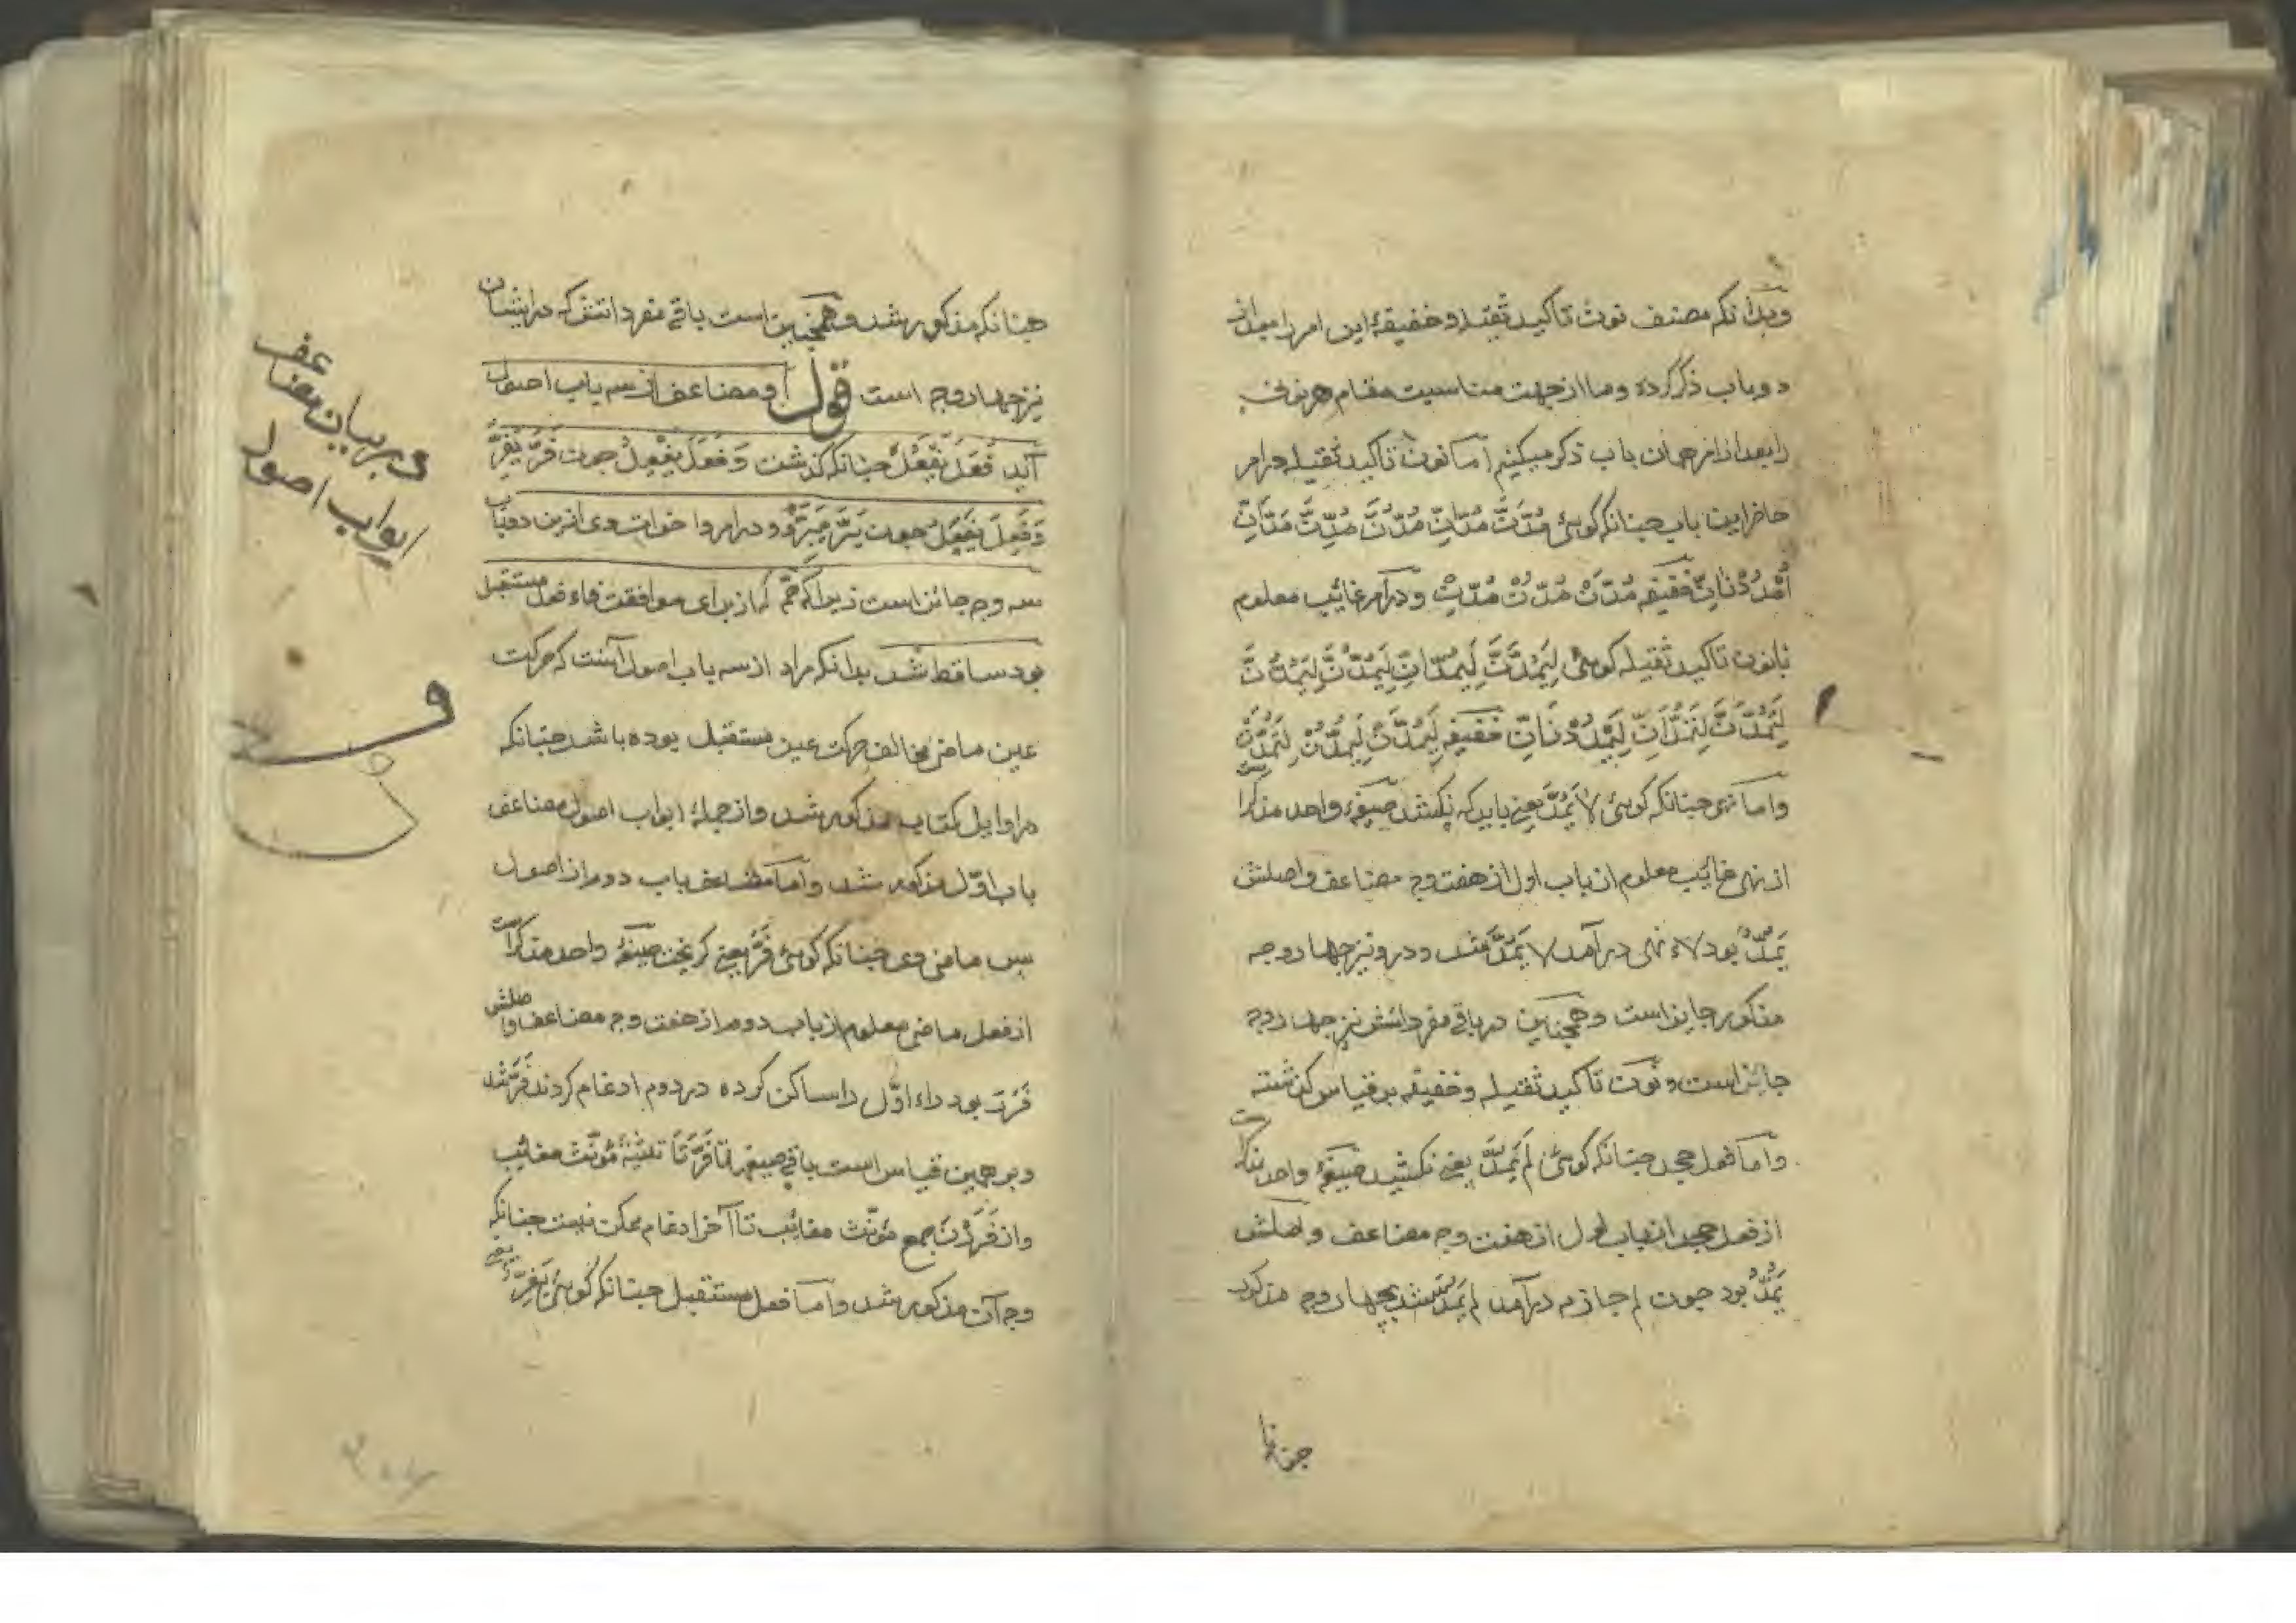 وبدانکه مصنف نون تاکید ثقیله و خفیفهٔ این امر را بعد از
دو باب ذکر کرده و ما از جهت مناسبت مقام هر نونی
را بعد از امر همان باب ذکر میکنیم اما نون تاکید ثقیله در امر
حاضر این باب چنانکه کوئی مُدَّنَّ مُدّانِّ مُدُّنَّ مُدِّنَّ مُدّانِّ
اُمْدُدْنانِّ خفیفه مُدَّنْ مُدُّنْ مُدِّنْ و در امر غائب معلوم
بانون تاکید ثقیله کوئی لِیَمُدَّنَّ لِیَمُدّانِّ لِیَمُدُّنَّ لِتَمُدَّنَّ
لِتَمُدّانِّ لِیَمْدُدْنَانِّ خفیفه لِیَمُدَّنْ لِیَمُدُّنْ لِتَمُدَّنْ
واما نهی چنانکه کوئی لا یَمُدَّ یعنی باید که نکشد صیغهٔ واحد مذکر است
از نهی غایب معلوم از باب اول از هفت وجه مضاعف واصلش
یَمُدُّ بود لاء نهی درآمد لا یَمُدَّ شد و درو نیز چهار وجه
مذکور جایز است و همچنین در باقی مفرداتش نیز چهار وجه
جایز است و نون تاکید ثقیله و خفیفه بر قیاس کذشته
واما فعل جحد چنانکه کوئی لم یَمُدَّ یعنی نکشید صیغهٔ واحد مذکر است
از فعل جحد از باب اول از هفت وجه مضاعف واصلش
یَمُدُّ بود چون لم جازم درآمد لم یَمُدَّ شد بچهار وجه مذکور
چنانکه مذکور شد و همچنین است باقی مفرداتش که در ایشان
نیز چهار وجه است قول او مضاعف از سه باب اصول
آید فَعَلَ یَفْعُلُ چنانکه کذشت وَفَعَلَ یَفْعِلُ چون فَرَّ یَفِرُّ
وَفَعِلَ یَفْعَلُ چون بَرَّ یَبَرُّ و در امر و اخوات وی ازین دو باب
سه وجه جائز است زیرا که ضمّ که از برای موافقت فاء فعل مستقبل
بود ساقط شد بدانکه مراد از سه باب اصول آنست که حرکت
عین ماضی مخالف حرکت عین مستقبل بوده باشد چنانکه
در اوایل کتاب مذکور شد و از جملهٔ ابواب اصول مضاعف
باب اوّل مذکور شد واما مضاعف باب دوم از اصول
پس ماضی وی چنانکه کوئی فَرَّ یعنی کریخت صیغهٔ واحد مذکر است
از فعل ماضی معلوم از باب دوم از هفت وجه مضاعف واصلش
فَرَرَ بود راء اوّل را ساکن کرده در دوم ادغام کردند فَرَّ شد
و بر همین قیاس است باقی صیغه تا فَرَّتا تثنیهٔ مؤنّث مغایب
واز فَرَرْنَ جمع مؤنّث مغایب تا آخر ادغام ممکن نیست چنانکه
وجه آن مذکور شد واما فعل مستقبل چنانکه کوئی یَفِرُّ یعنی
در بیان مضاعف
ابواب اصول